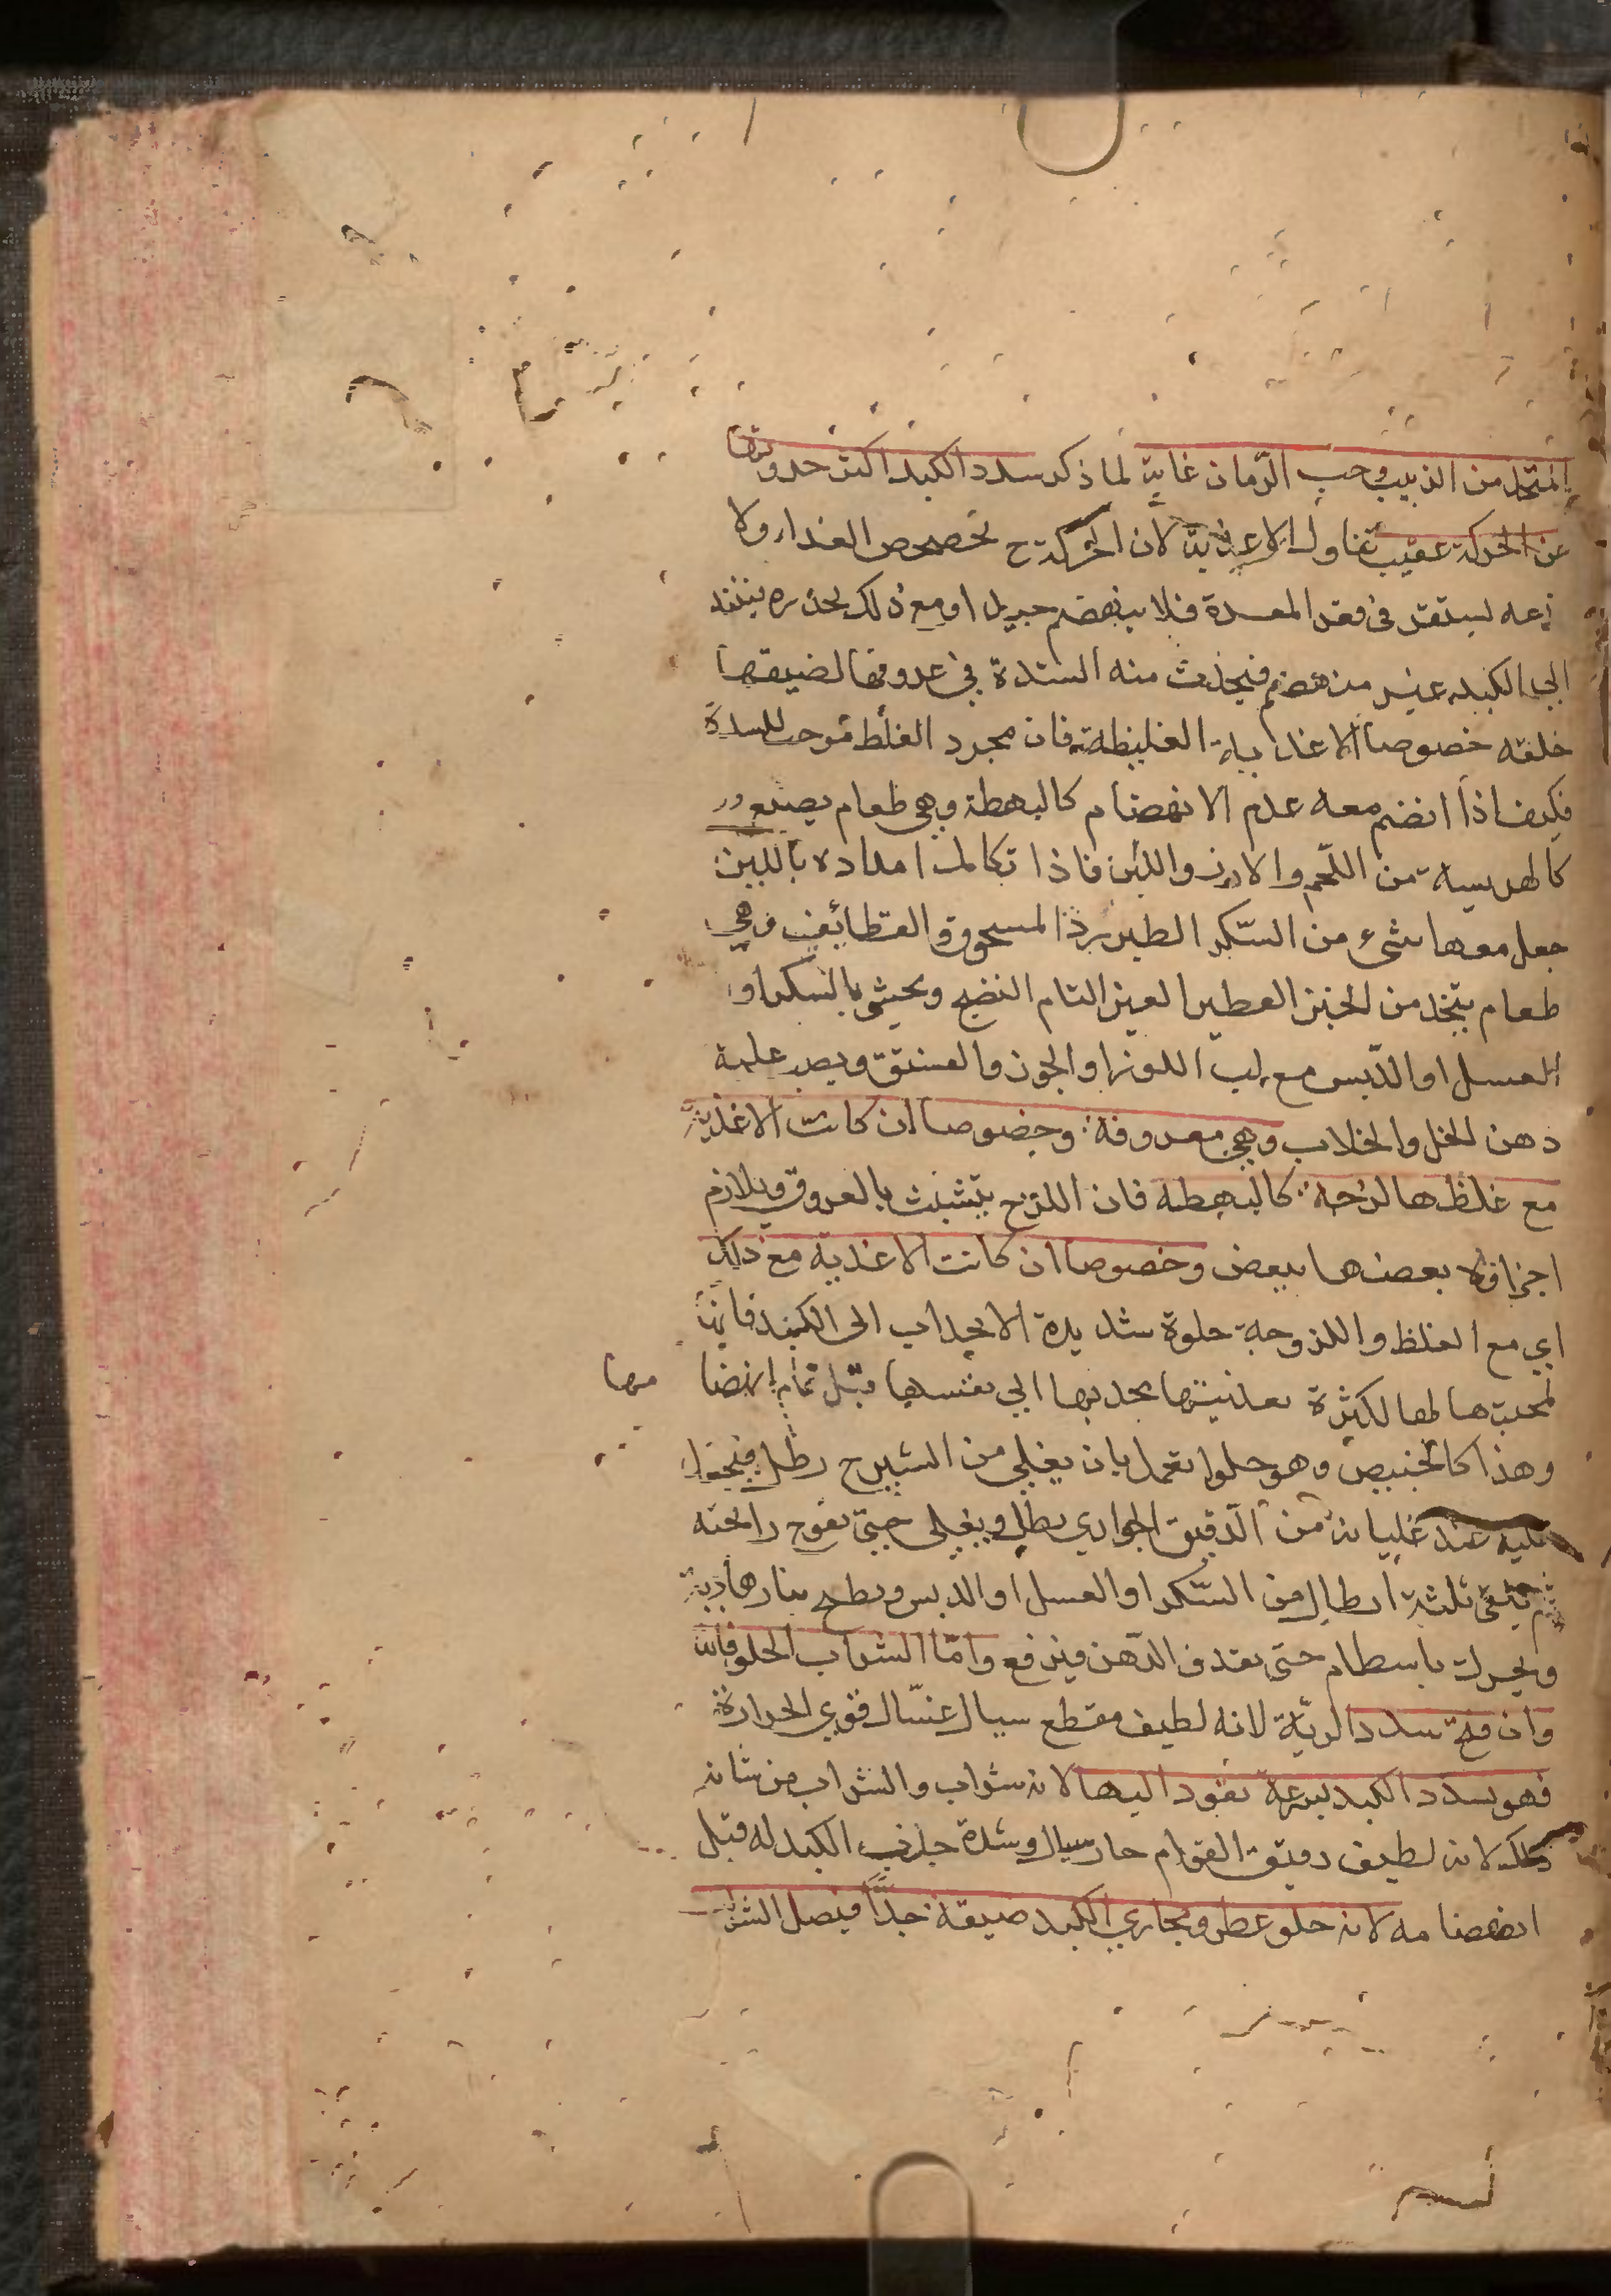 المتخذ من الزبيب وحب الرمان غاية لما ذكر سدد الكبد اكثر حدوثها
عن الحركة عقيب تناول الاغذية لان الحركة ح تخضخض الغذاء ولا
يدعه ليستقر في قعر المعدة فلا ينهضم جيدا ومع ذلك يحدره فينفذ
الى الكبد عن غير هضم فيحدث منه السدة في عروقها لضيقها
خلقة خصوصا الاغذية الغليظة فان مجرد الغلظ موجب للسدة
فكيف اذا انضم معه عدم الانهضام كالبهطة وهي طعام يصنع
كالهريسة من اللحم والارز واللبن فاذا تكاملت امداده باللبن
جعل معها شيء من السكر الطبرزذ المسحوق والقطائف وهي
طعام يتخذ من الخبز الفطير الغير التام النضج ويحشى بالسكر او
العسل او الدبس مع لب اللوز او الجوز والفستق ويصب عليه
دهن الخل والجلاب وهي معروفة وخصوصا ان كانت الاغذية
مع غلظها لزجة كالبهطة فان اللزج يتشبث بالعروق ويلازم
اجزاؤه بعضها ببعض وخصوصا ان كانت الاغذية مع ذلك
اي مع الغلظ واللزوجة حلوة شديدة الانجذاب الى الكبد فانها
لمحبتها لها لكثرة تغذيتها تجذبها الى نفسها قبل تمام انهضا مها
وهذا كالخبيص وهو حلوا تعمل بان يغلي من الشيرج رطل فيجعل
عليه عند غليانه من الدقيق الحواري رطل ويغلى حتى تفوح رائحته
ثم يلقى ثلثة ارطال من السكر او العسل او الدبس ويطبخ بنار هادية
ويحرك باسطام حتى يقذف الدهن فيرفع واما الشراب الحلو فانه
وان فتح سدد الرية لانه لطيف مقطع سيال غسال قوي الحرارة
فهو يسدد الكبد بسرعة نفوذه اليها لانه شراب والشراب من شانه
ذلك لانه لطيف رقيق القوام حار سيال وشدة جذب الكبد له قبل
انهضامه لانه حلو عطر ومجاري الكبد ضيقة جدا فيصل